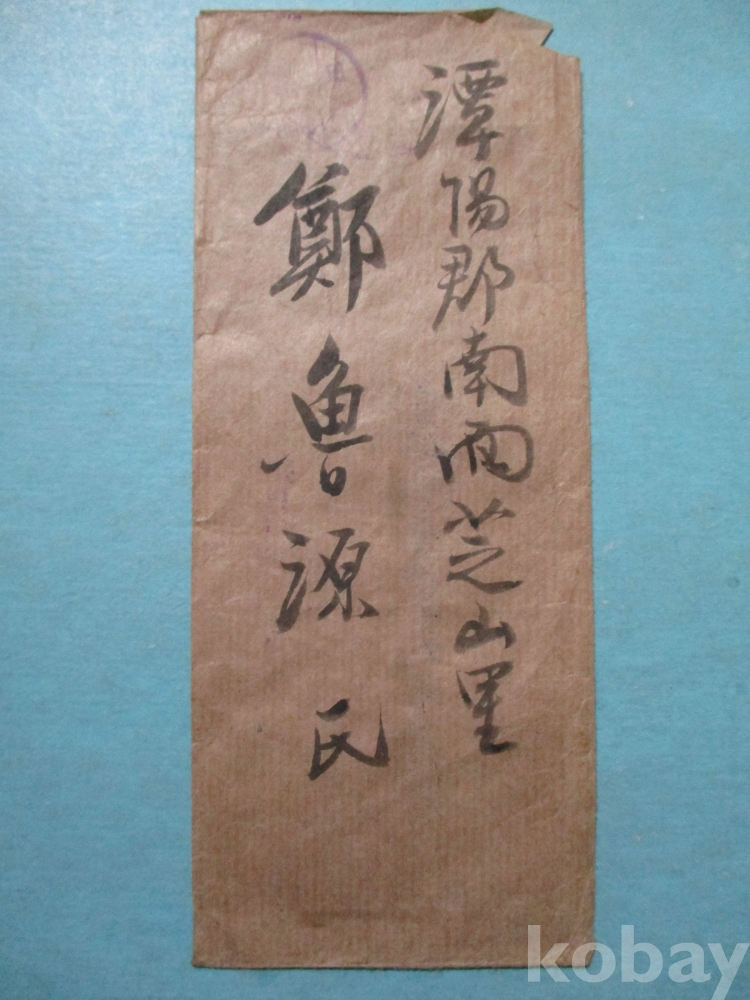 潭陽郡南面芝山里
鄭魯源氏
kobay